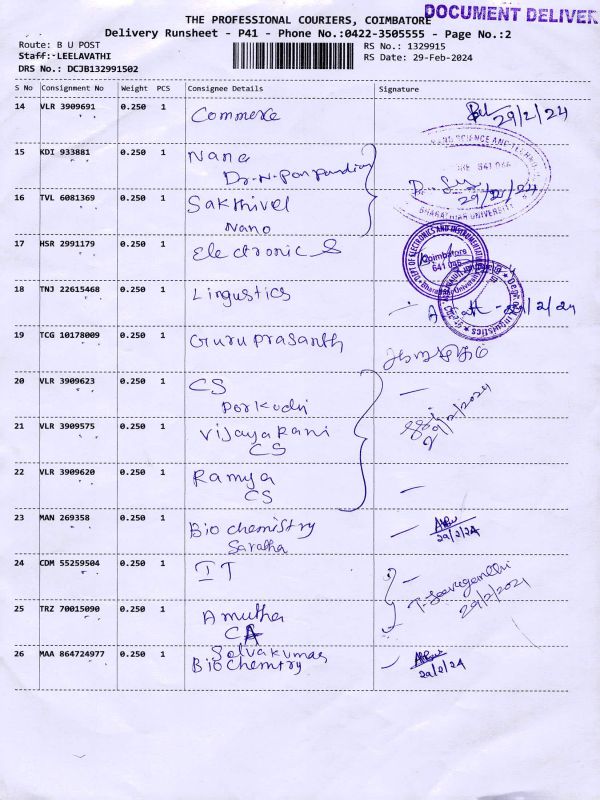 DOCUMENT DELIVER
THE PROFESSIONAL COURIERS, COIMBATORE
Delivery Runsheet - P41 - Phone No.:0422-3505555 - Page No.:2
Route: B U POST
RS No.: 1329915
Staff: LEELAVATHI
RS Date: 29-Feb-2024
DRS No.: DCJB132991502
S No Consignment No Weight PCS Consignee Details Signature
14 VLR 3909691 0.250 1 Commerce 29/2/24
15 KDI 933881 0.250 1 Nano
Dr. N. Ponpandian
16 TVL 6081369 0.250 1 Sakthivel 29/2/24
Nano
BHARATHIAR UNIVERSITY
17 HSR 2991179 0.250 1 Electronics
Coimbatore
641 046
18 TNJ 22615468 0.250 1 Lingustics
19 TCG 10178009 0.250 1 Guru prasanth
20 VLR 3909623 0.250 1 CS
Porkodi
29/2/2024
21 VLR 3909575 0.250 1 Vijayarani
CS
22 VLR 3909620 0.250 1 Ramya
CS
23 MAN 269358 0.250 1 Bio chemistry
Saratha
29/2/24
24 CDM 55259504 0.250 1 IT
29/2/2024
25 TRZ 70015090 0.250 1 Amutha
CA
26 MAA 864724977 0.250 1 Selvakumar
Bio Chemtry
29/2/24